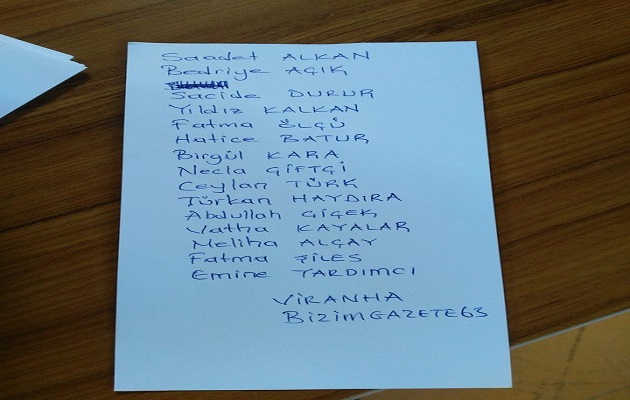 Saadet ALKAN
Bedriye AÇIK
Sacide DURUR
Yıldız KALKAN
Fatma ÖLÇÜ
Hatice BATUR
Birgül KARA
Necla ÇİFTÇİ
Ceylan TÜRK
Türkan HAYDIRA
Abdullah ÇİÇEK
Vatha KAYALAR
Meliha ALÇAY
Fatma ŞİLES
Emine YARDIMCI
VİRANHA
BİZİMGAZETE63